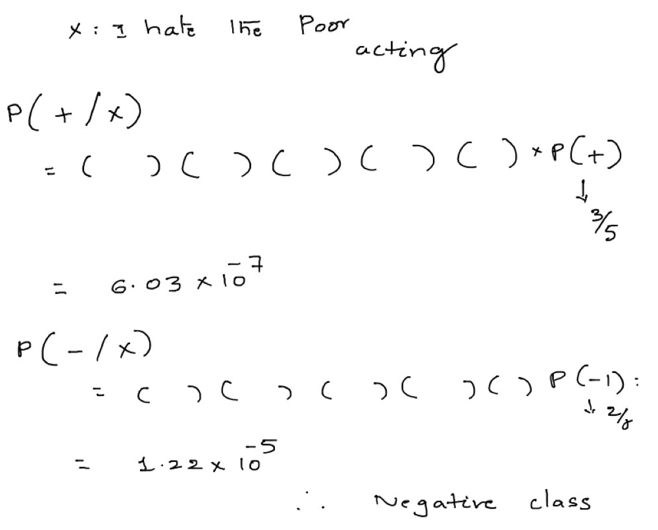 x : I hate the Poor
acting
P(+/x)
= ( ) ( ) ( ) ( ) ( ) * P(+)
↓
3/5
= 6.03 × 10^-7
P(-/x)
= ( ) ( ) ( ) ( ) ( ) P(-1) :
↓ 2/5
= 1.22 × 10^-5
∴ Negative class